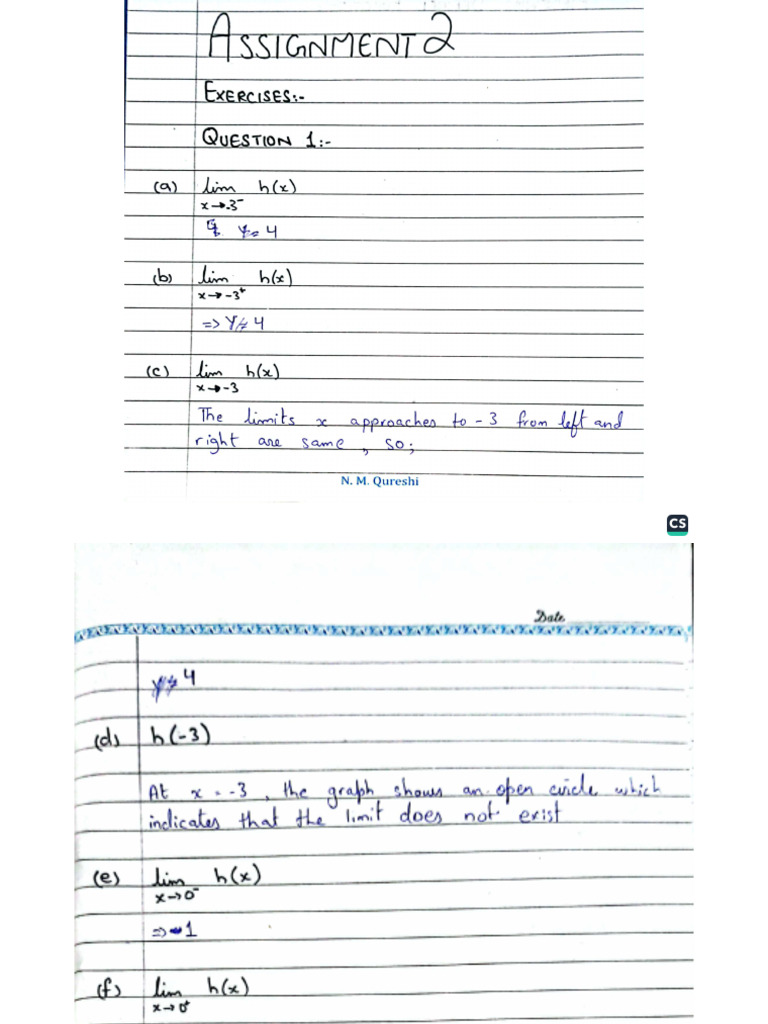 ASSIGNMENT 2
EXERCISES:-
QUESTION 1:-
(a) lim h(x)
x→-3⁻
y = 4
(b) lim h(x)
x→-3⁺
=> 4
(c) lim h(x)
x→-3
The limits x approaches to -3 from left and
right are same, so;
N. M. Qureshi
CS
Date
4
(d) h(-3)
At x = -3, the graph shows an open circle which
indicates that the limit does not exist
(e) lim h(x)
x→0⁻
=> 1
(f) lim h(x)
x→0⁺